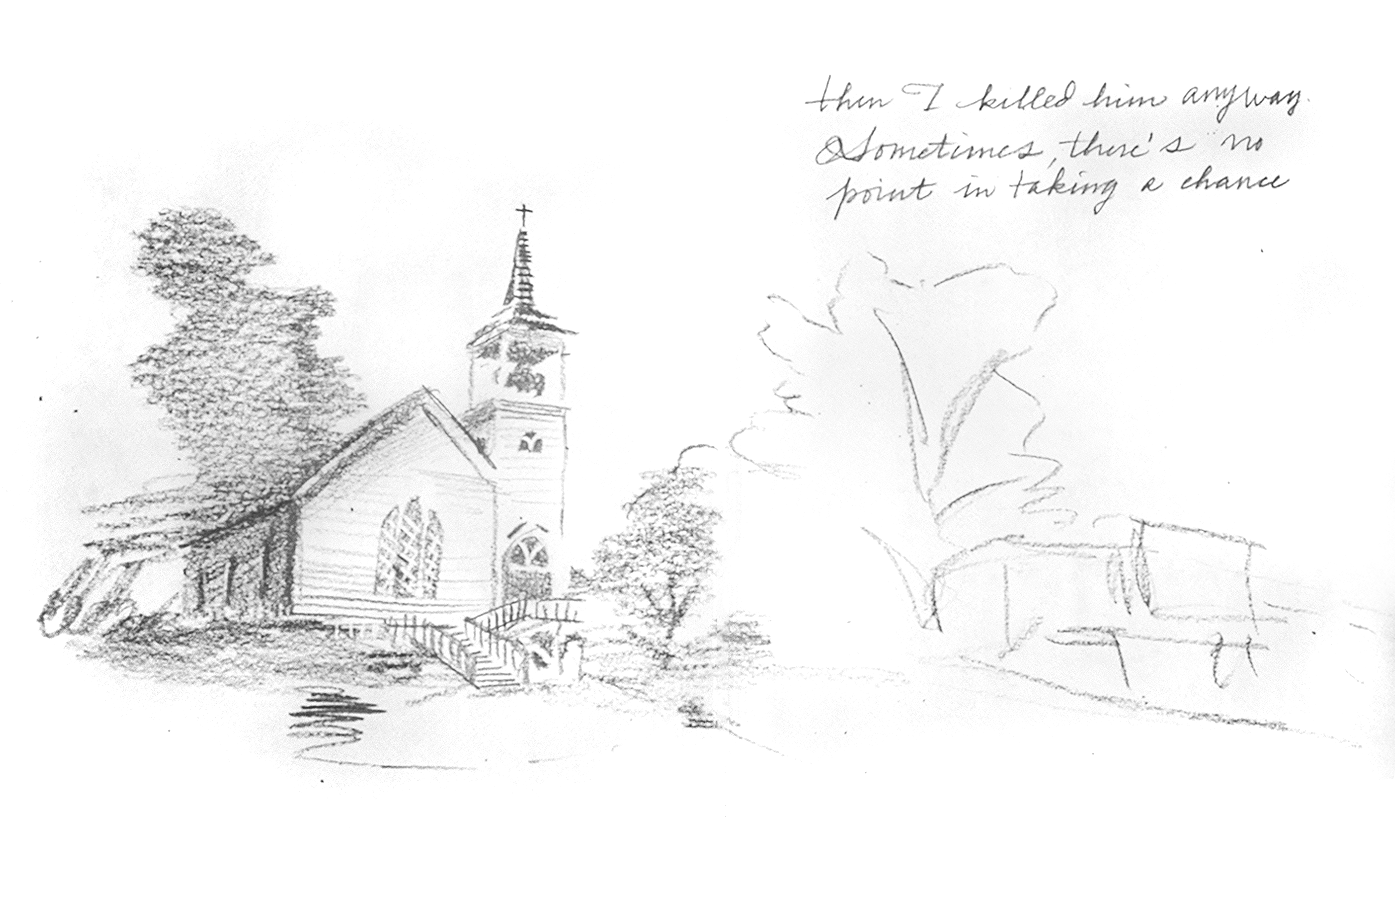 then I killed him anyway.
Sometimes, there's no
point in taking a chance